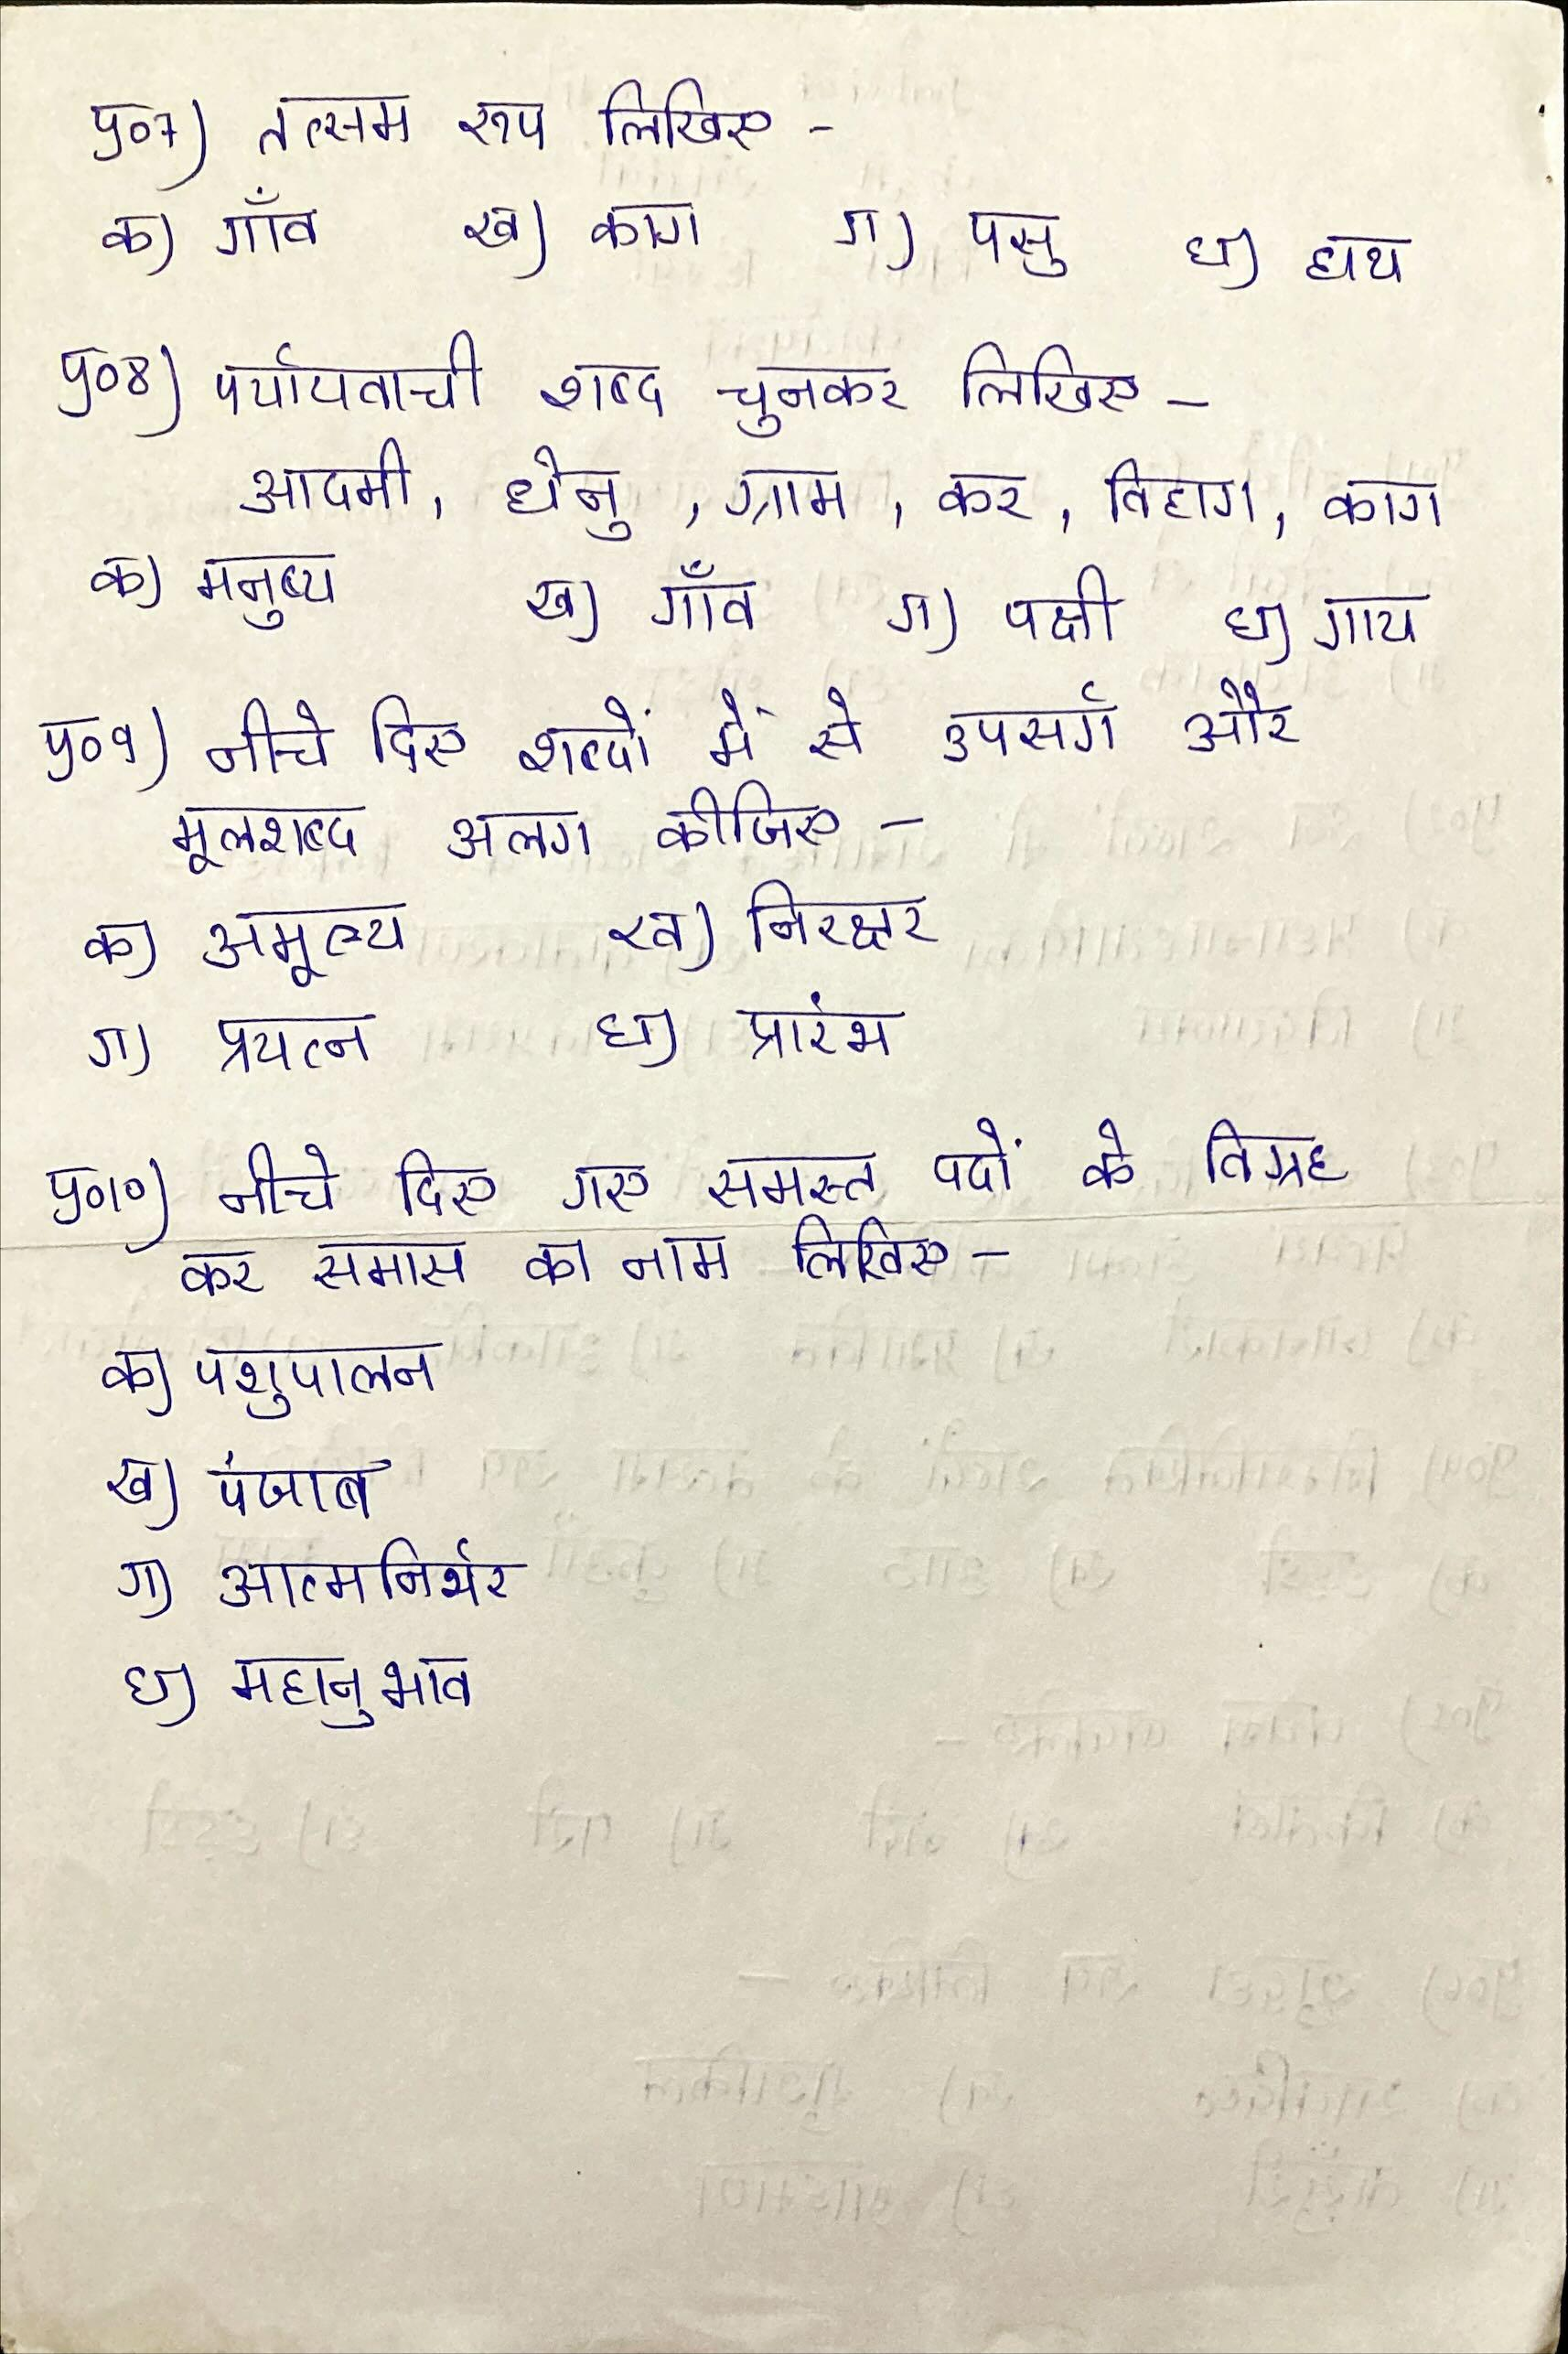 प्र०7) तत्सम रूप लिखिए -
क) गाँव ख) काग ग) पसु घ) हाथ
प्र०8) पर्यायवाची शब्द चुनकर लिखिए -
आदमी, धेनु, ग्राम, कर, विहाग, काग
क) मनुष्य ख) गाँव ग) पक्षी घ) गाय
प्र०9) नीचे दिए शब्दों में से उपसर्ग और
मूलशब्द अलग कीजिए -
क) अमूल्य ख) निरक्षर
ग) प्रयत्न घ) प्रारंभ
प्र०10) नीचे दिए गए समस्त पदों के विग्रह
कर समास का नाम लिखिए -
क) पशुपालन
ख) पंजाब
ग) आत्मनिर्भर
घ) महानुभाव